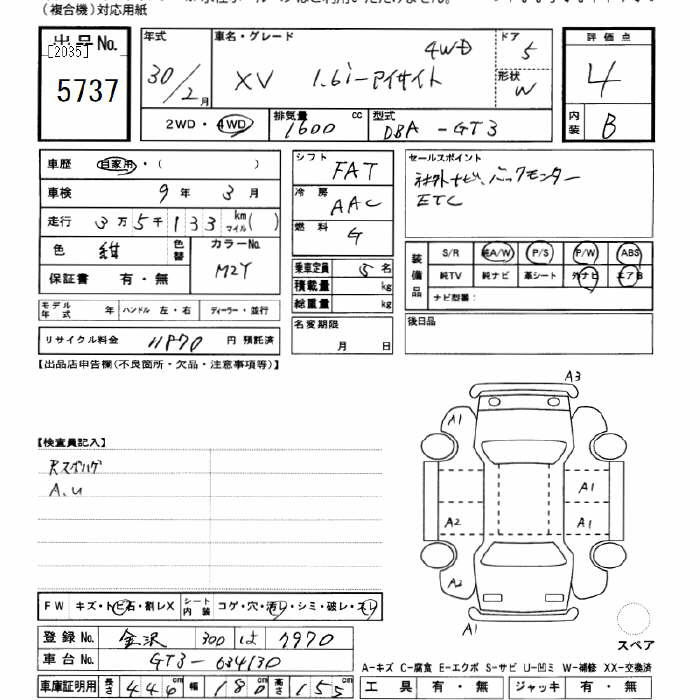 (複合機)対応用紙
出品No.
[2035]
5737
年式 30/2月
車名・グレード XV 1.6i-アイサイト 4WD
ドア 5
形状 W
2WD・4WD
排気量 1600 cc
型式 DBA-GT3
評価点 4
内装 B
車歴 自家用・( )
車検 9年 3月
走行 3万5千133 km マイル( )
色 紺 色替 カラーNo. M2Y
保証書 有・無
モデル年式 年 ハンドル 左・右 ディーラー・並行
リサイクル料金 11970 円 預託済
シフト FAT
冷房 AAC
燃料 G
乗車定員 5名
積載量 kg
総重量 kg
名変期限 月 日
セールスポイント
社外ナビ、バックモニター
ETC
装備品 S/R 純A/W P/S P/W ABS
純TV 純ナビ 革シート 外ナビ エアB
ナビ型番:
後日品
【出品店申告欄(不良箇所・欠品・注意事項等)】
【検査員記入】
A.U
A3
A1
A1
A2
A1
A2
A1
スペア
FW キズ・トビ石・割レX シート内装 コゲ・穴・汚レ・シミ・破レ・スレ
登録No. 金沢 300 は 7970
車台No. GT3-034130
車庫証明用 長さ 446cm 幅 180cm 高さ 155cm
A-キズ C-腐食 E-エクボ S-サビ U-凹ミ W-補修 XX-交換済
工具 有・無 ジャッキ 有・無